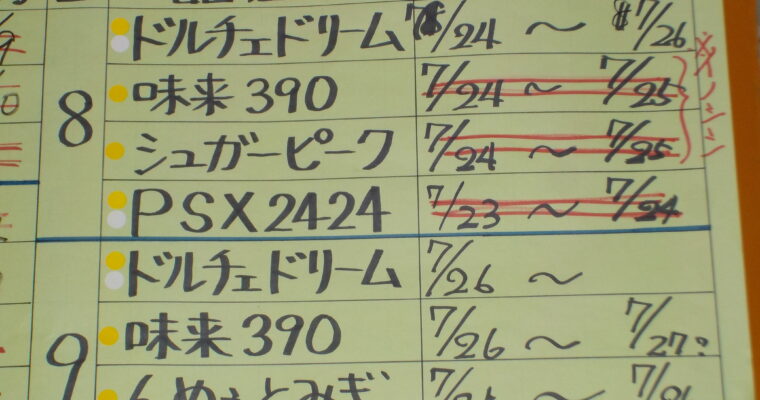 ドルチェドリーム 7/24 ~ 7/26
8
味来390 7/24 ~ 7/25
シュガーピーク 7/24 ~ 7/25
PSX2424 7/23 ~ 7/24
ドルチェドリーム 7/26 ~
9
味来390 7/26 ~ 7/27?